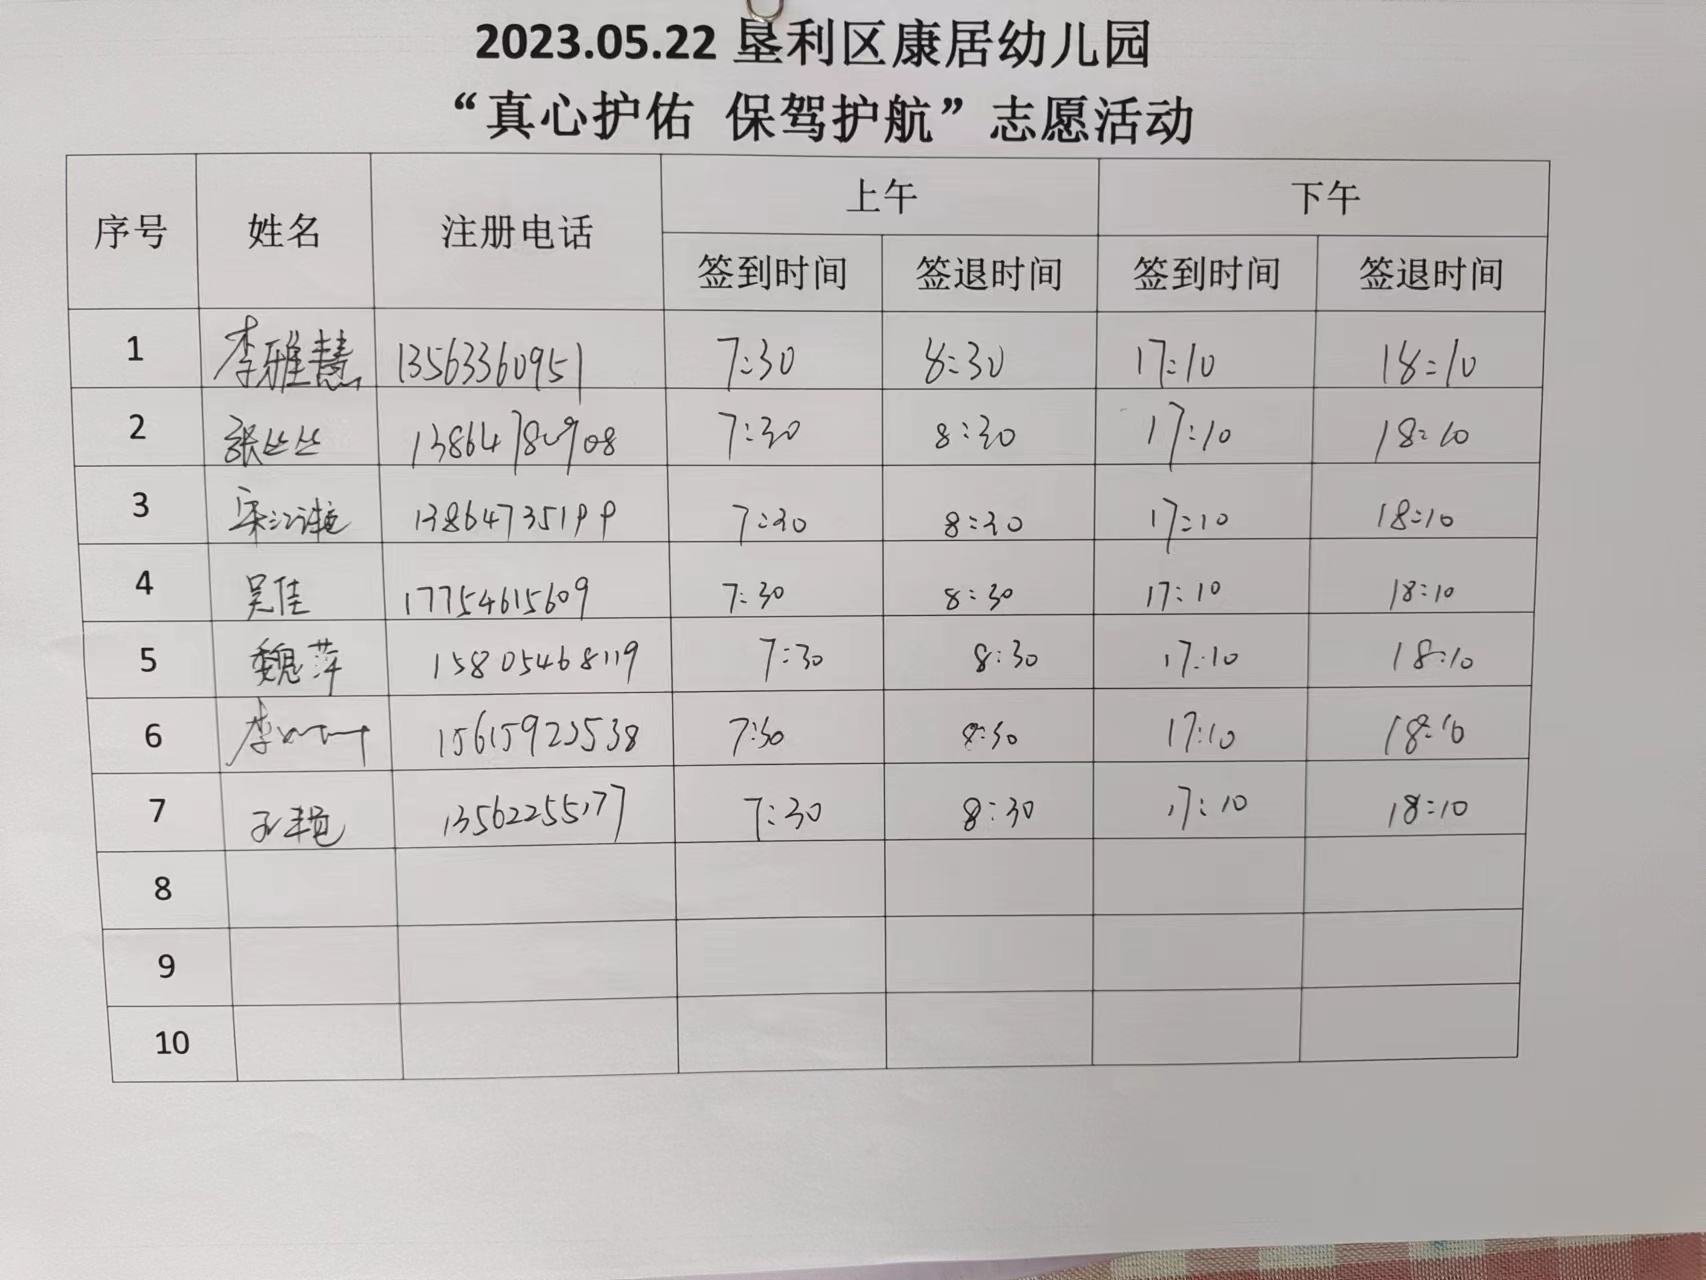 2023.05.22 垦利区康居幼儿园
“真心护佑 保驾护航”志愿活动
序号 姓名 注册电话 上午 下午
签到时间 签退时间 签到时间 签退时间
1 李雅慧 13563360951 7:30 8:30 17:10 18:10
2 张丛丛 13864780908 7:30 8:30 17:10 18:10
3 13864735199 7:30 8:30 17:10 18:10
4 吴佳 17754615609 7:30 8:30 17:10 18:10
5 魏萍 15805468119 7:30 8:30 17:10 18:10
6 15615923538 7:30 8:30 17:10 18:10
7 13562255177 7:30 8:30 17:10 18:10
8
9
10